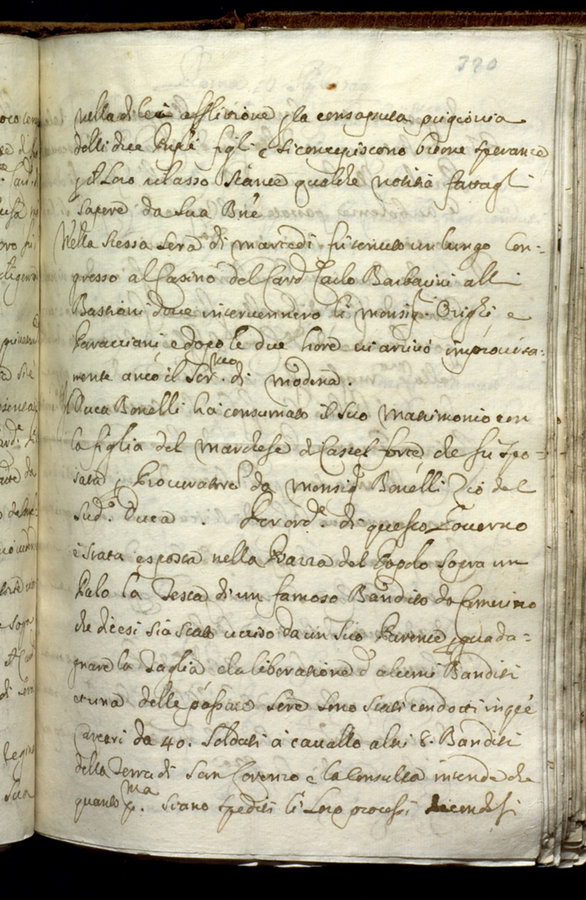 320
nella di lei afflizione p la consaputa prigionia
delli due figli e si concepiscono buone speranze
p il loro rilasso stante qualche notitia fattagli
sapere da sua Bne
Nella stessa sera di martedi fu tenuto un lungo Con-
gresso al Casino del Card Carlo Barbarini alli
Bastioni dove intervennero li monsig.ri Orighi e
Paracciani e dopo le due hore vi arrivò improvisa-
mente anco il Ser.mo di modena.
Il Duca Bonelli ha consumato il suo matrimonio con
la figlia del marchese di Castel forte che fu spo-
sata p Procuratore da monsig Bonelli Zio del
sud.o Duca. Per ord.e di questo Governo
è stata esposta nella Piazza del Popolo sopra un
Palo la Testa di un famoso Bandito da Camerino
che dicesi sia stato ucciso da un suo Parente p guada-
gnare la taglia e la liberatione d alcuni Banditi
et una delle passate sere sono stati condotti in q.e
carceri da 40. soldati a cavallo altri 8. Banditi
della Terra di San Lorenzo e la Consulta intende che
quanto p.ma siano spediti li loro processi dicendosi